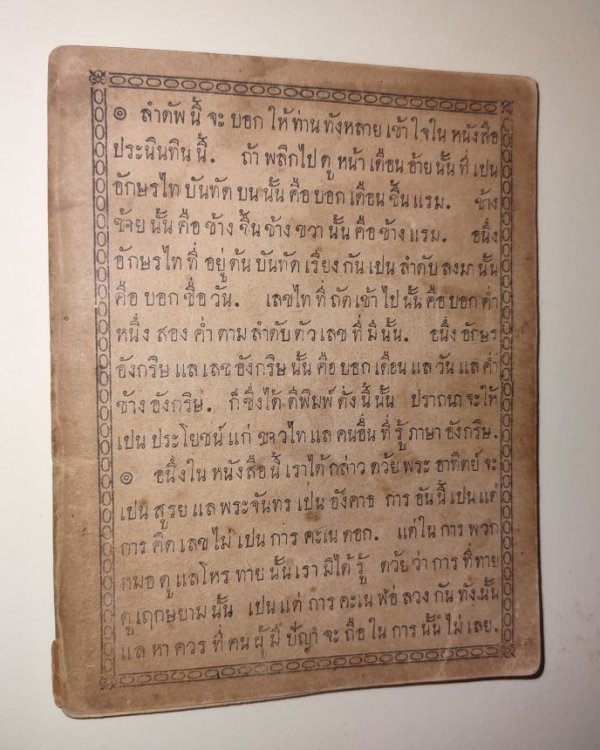 ๏ ลำดัพ นี้ จะ บอก ให้ ท่าน ทังหลาย เข้า ใจ ใน หนังสือ
ประนินทิน นี้. ถ้า พลิกไป ดู หน้า เดือน อ้าย นั้น ที่ เปน
อักษรไท บันทัด บน นั้น คือ บอก เดือน ขึ้น แรม. ข้าง
ซ้าย นั้น คือ ข้าง ขึ้น ข้าง ขวา นั้น คือ ข้าง แรม. อนึ่ง
อักษรไท ที่ อยู่ ต้น บันทัด เรียง กัน เปน ลำดับ ลงมา นั้น
คือ บอก ชื่อ วัน. เลขไท ที่ ถัด เข้า ไป นั้น คือ บอก ค่ำ
หนึ่ง สอง ค่ำ ตาม ลำดับ ตัว เลข ที่ มี นั้น. อนึ่ง อักษร
อังกริษ แล เลข อังกริษ นั้น คือ บอก เดือน แล วัน แล ค่ำ
ข้าง อังกริษ. ก็ ซึ่ง ได้ ตีพิมพ์ ดั่ง นี้ นั้น ปราถนา จะ ให้
เปน ประโยชน์ แก่ ชาว ไท แล คน อื่น ที่ รู้ ภาษา อังกริษ.
๏ อนึ่ง ใน หนังสือ นี้ เรา ได้ กล่าว ด้วย พระ อาทิตย์ จะ
เปน สูรย แล พระ จันทร เปน อังคาธ การ อัน นี้ เปน แต่
การ คิด เลข ไม่ เปน การ คะเน ดอก. แต่ ใน การ พวก
หมอ ดู แล โหร ทาย นั้น เรา มิได้ รู้ ด้วย ว่า การ ที่ ทาย
ดู ฤกษยาม นั้น เปน แต่ การ คะเน ฬ่อ ลวง กัน ทัง นั้น
แล หา ควร ที่ คน ผู้ มี ปัญา จะ ถือ ใน การ นั้น ไม่ เลย.